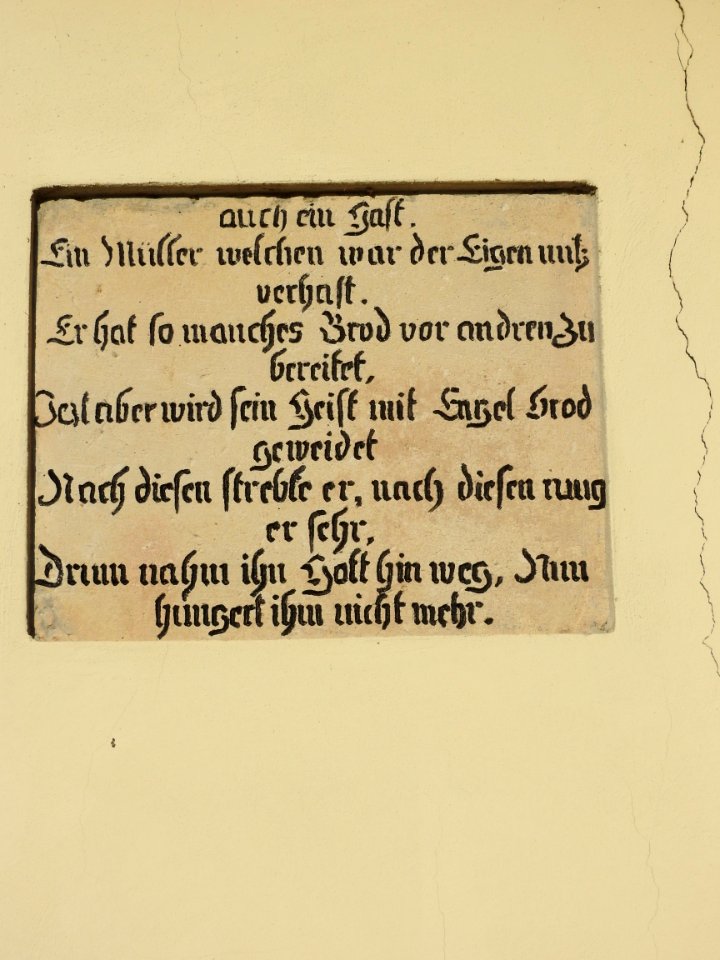 auch ein Gast.
Ein Müller welchen war der Eigen nutz
verhast.
Er hat so manches Brod vor andren zu
bereitet,
Jezt aber wird sein Geist mit Engel Brod
geweidet
Nach diesen strebte er, nach diesen rung
er sehr,
Drum nahm ihn Gott hin weg, Nun
hungert ihm nicht mehr.